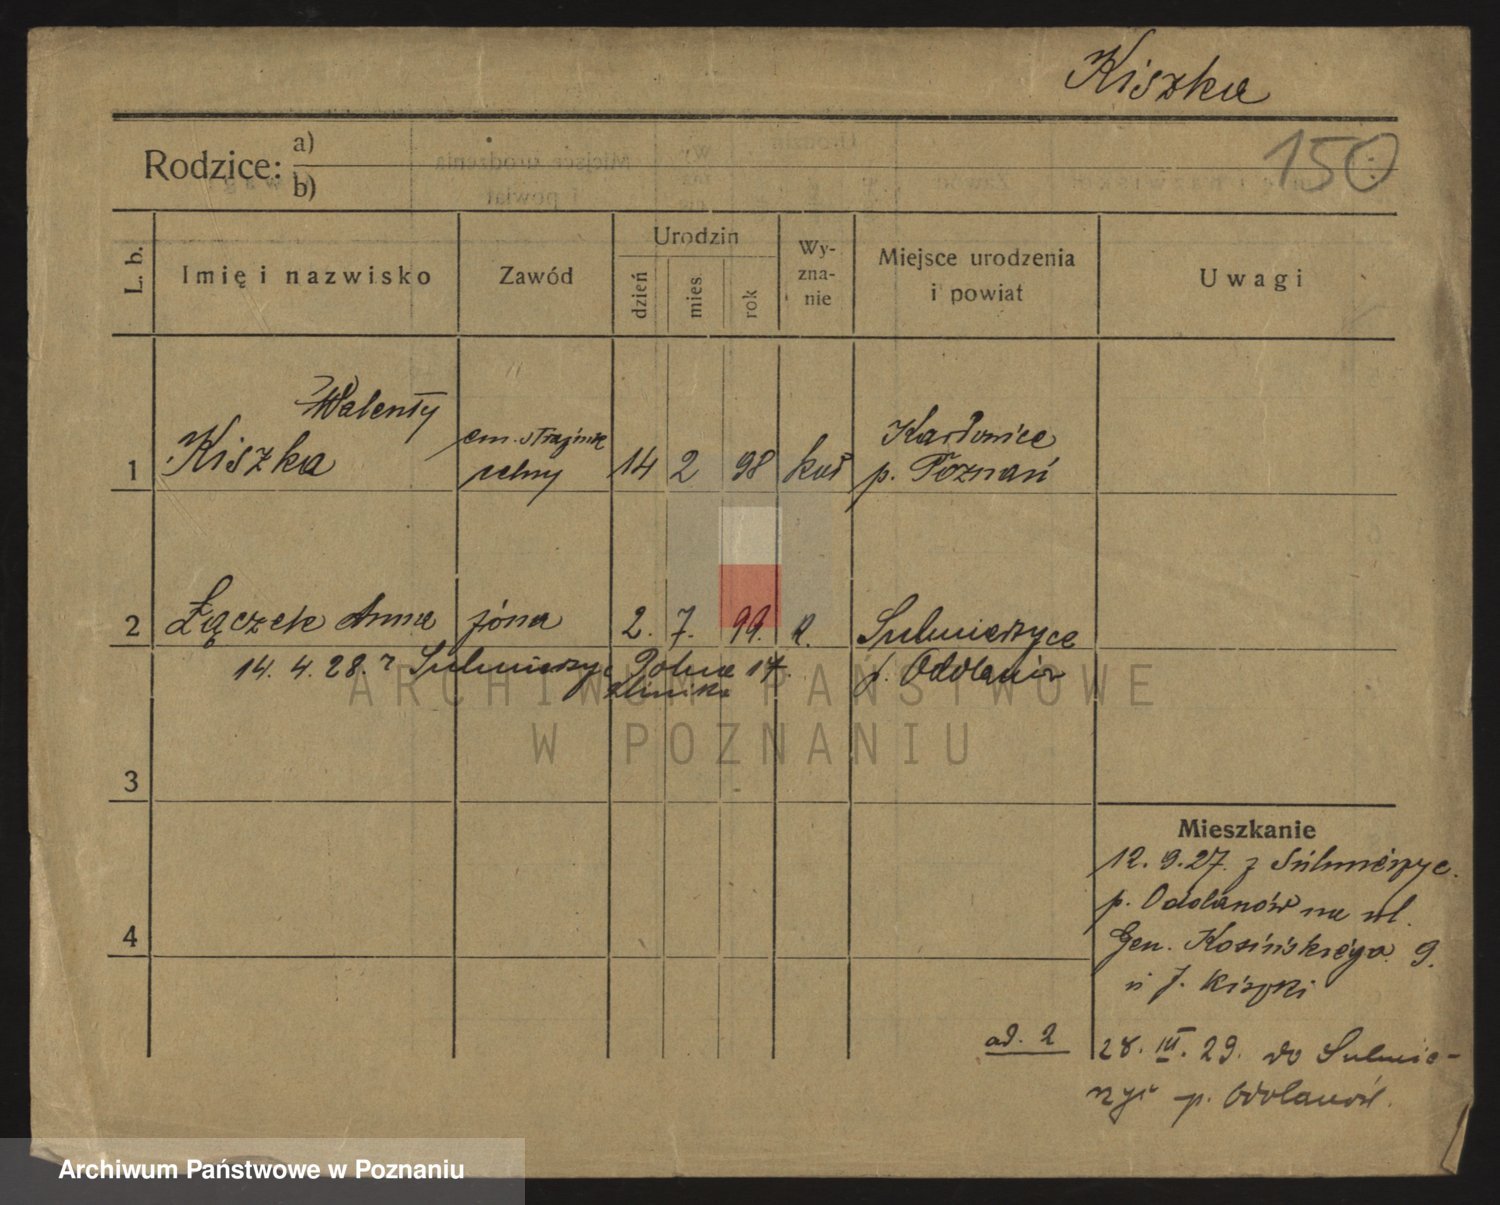 Kiszka
150
Rodzice: a)
b)
L. b.
Imię i nazwisko
Zawód
Urodzin
dzień
mies
rok
Wy-
zna-
nie
Miejsce urodzenia
i powiat
Uwagi
1
Walenty
Kiszka
em. strażnik
celny
14 2 98 kat
Karłowice
p. Poznań
2
Łączek Anna żona 2. 7. 99. k. Sulmierzyce
14. 4. 28. z Sulmierzyc Polna 17. p. Odolanów
klinika
3
4
Mieszkanie
12. 9. 27. z Sulmierzyc.
p. Odolanów na ul.
Gen. Kosińskiego. 9.
u J. Kiszki
ad. 2 28. III. 29. do Sulmie-
rzyc p. Odolanów.
ARCHIWUM PAŃSTWOWE
W POZNANIU
Archiwum Państwowe w Poznaniu